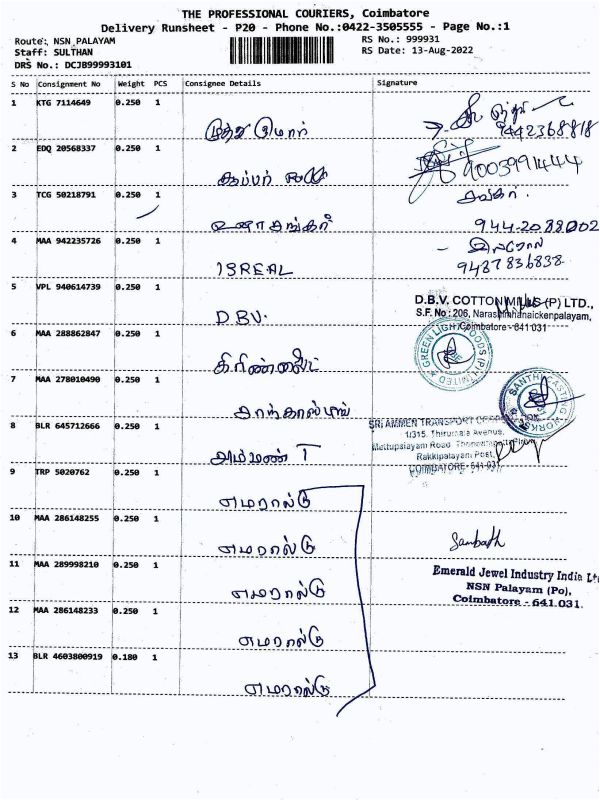 THE PROFESSIONAL COURIERS, Coimbatore
Delivery Runsheet - P20 - Phone No.:0422-3505555 - Page No.:1
Route: NSN_PALAYAM RS No.: 999931
Staff: SULTHAN RS Date: 13-Aug-2022
DRS No.: DCJB99993101
S No Consignment No Weight PCS Consignee Details Signature
1 KTG 7114649 0.250 1
9442368818
2 EDQ 20568337 0.250 1
9003991444
3 TCG 50218791 0.250 1
சங்கர்.
944-2088002
4 MAA 942235726 0.250 1
ISREAL 9487836838
5 VPL 940614739 0.250 1
D.B.V. COTTON MILLS (P) LTD.,
S.F. No : 206, Narasimhanaickenpalayam,
Coimbatore - 641 031
D.B.V.
6 MAA 288862847 0.250 1
GREEN LIGHT FOODS (P) LIMITED
7 MAA 278010490 0.250 1
SANTHI CASTING WORKS
8 BLR 645712666 0.250 1
SRI AMMEN TRANSPORT
1/315, Thirumala Avenue,
Mettupalayam Road,
Rakkipalayam Post,
COIMBATORE - 641 031
அம்மண் T
9 TRP 5020762 0.250 1
எமரால்டு
10 MAA 286148255 0.250 1
எமரால்டு Sambath
11 MAA 289998210 0.250 1
எமரால்டு
Emerald Jewel Industry India Lt
NSN Palayam (Po),
Coimbatore - 641.031.
12 MAA 286148233 0.250 1
எமரால்டு
13 BLR 4603800919 0.180 1
எமரால்டு